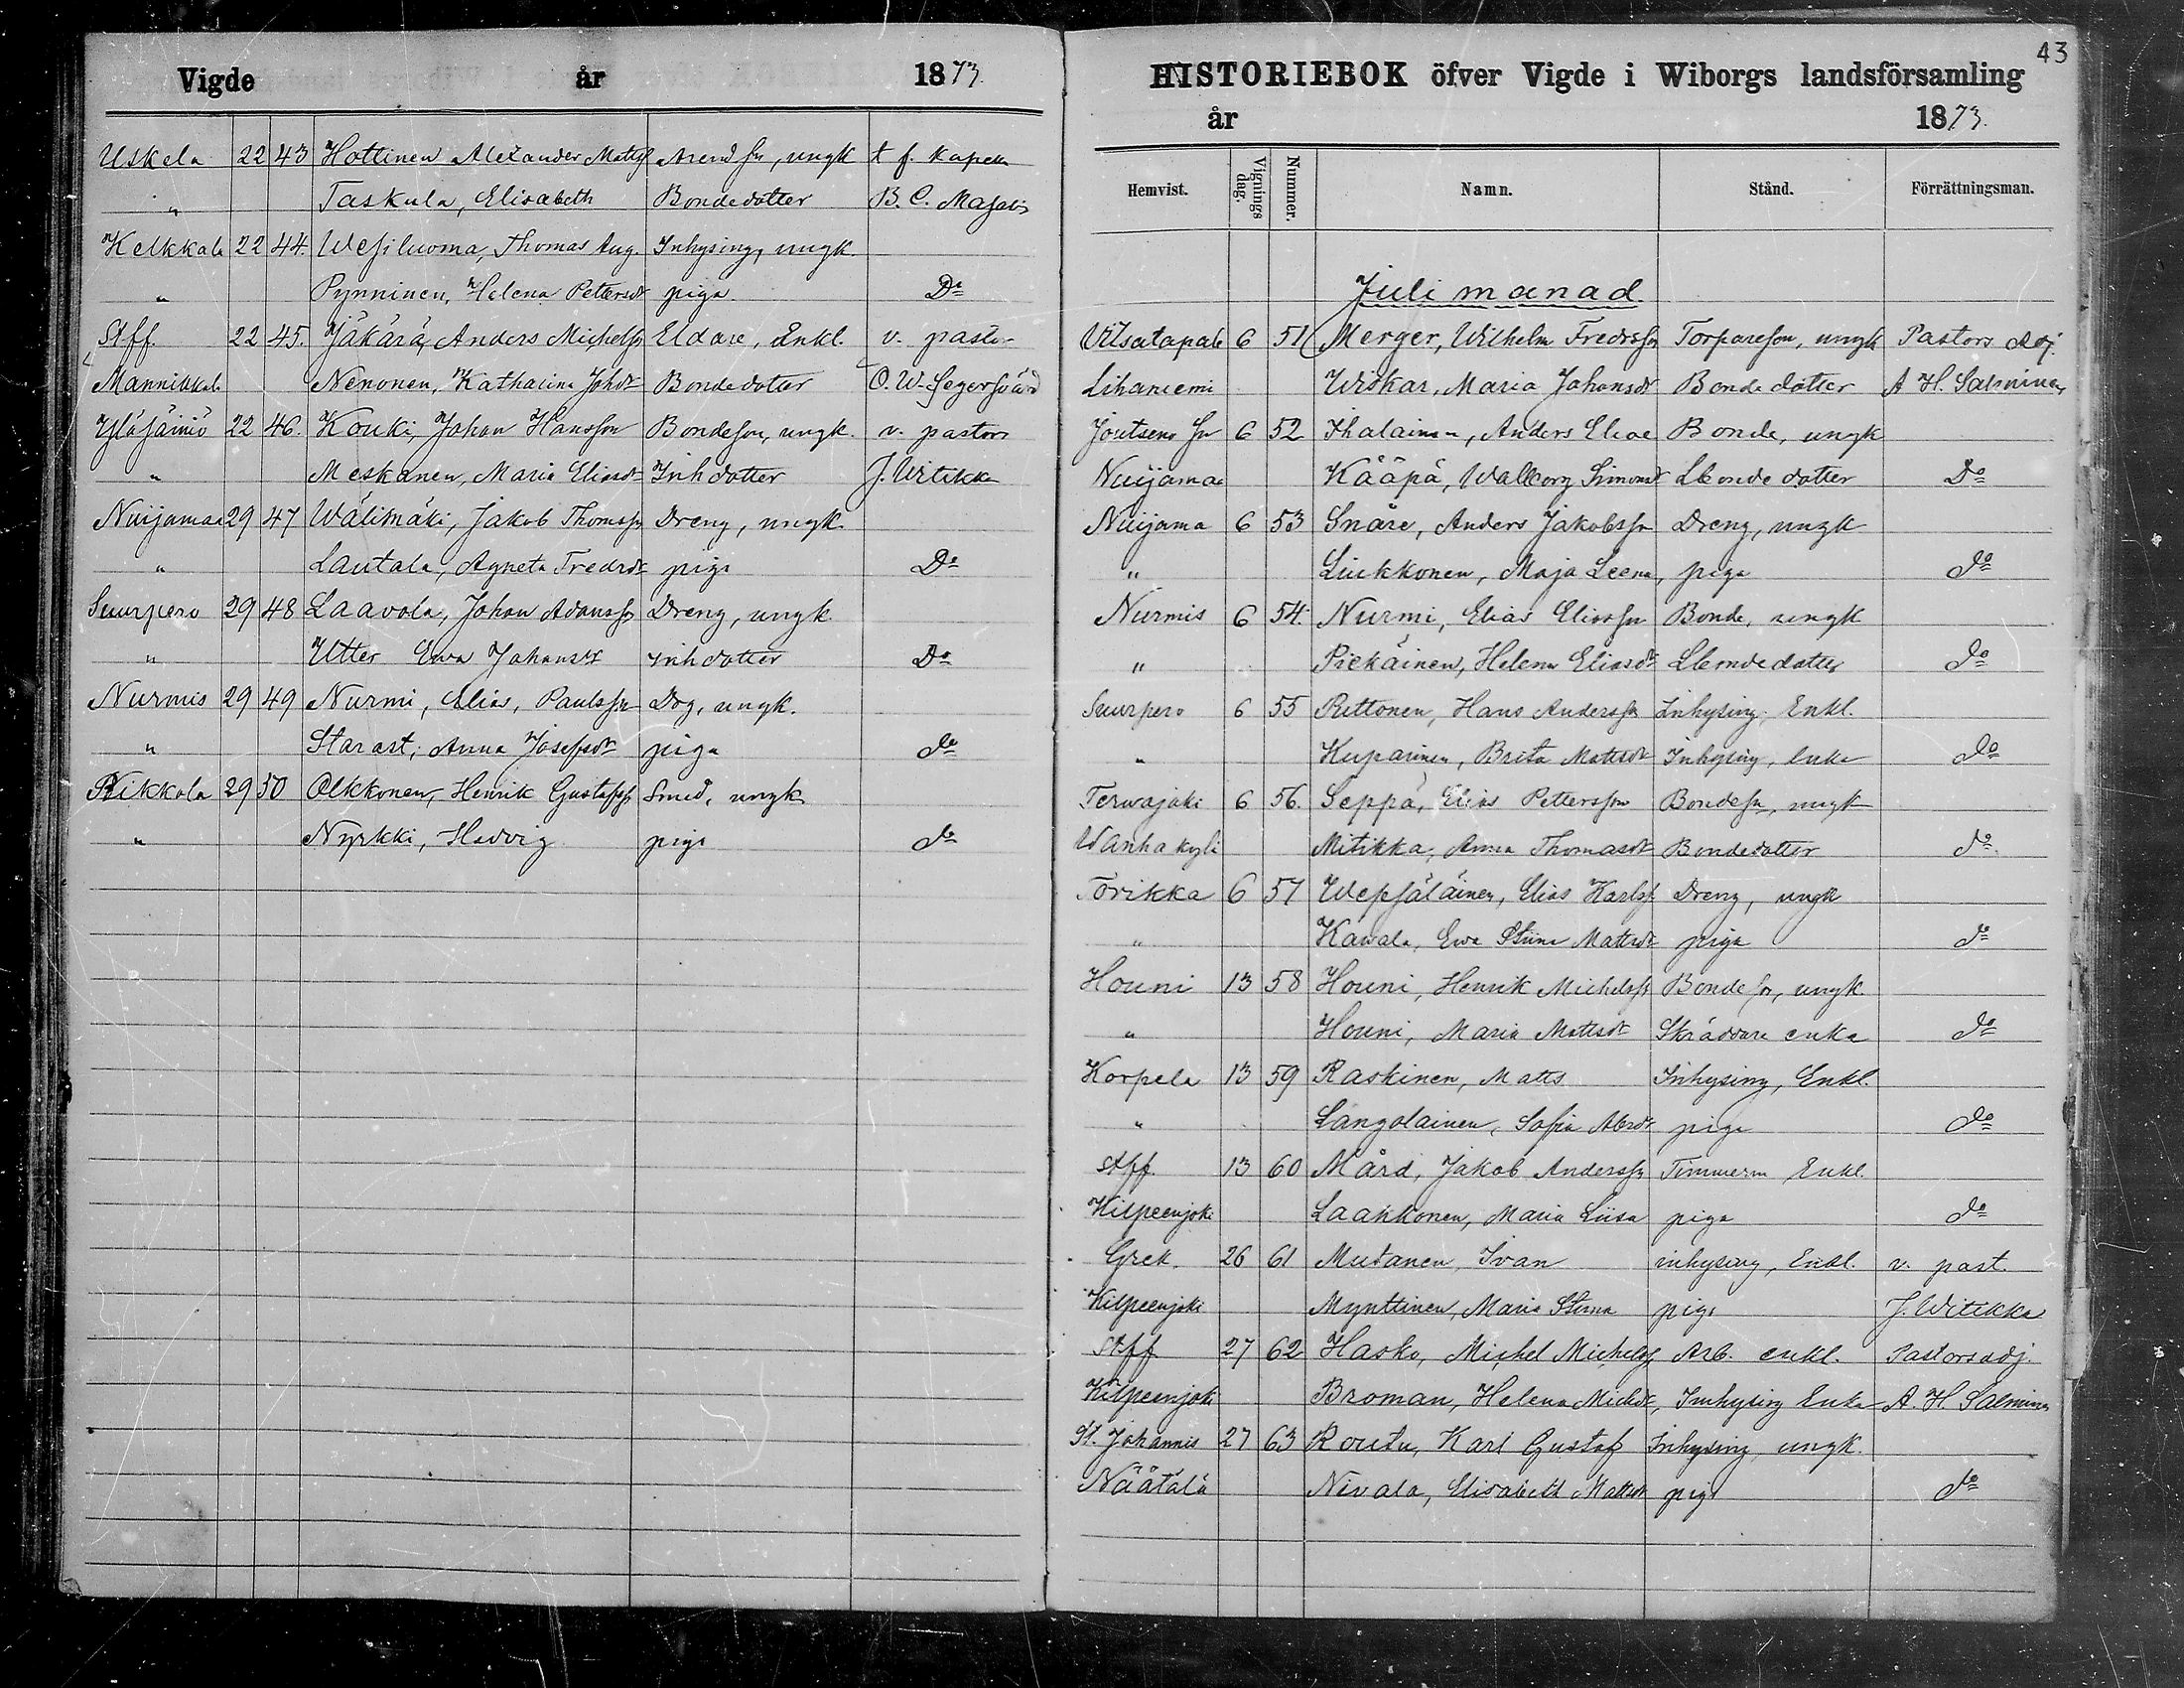 Vigde år 1873.
Uskela 22 43 Hottinen Alexander Mattss Arend sn, ungk t f. Kapell
" Taskula, Elisabeth Bondedotter B. C. Majalin
Kelkkala 22 44. Wesiluoma, Thomas Aug. Inhysing, ungk.
" Pynninen, Helena Pettersdr piga Do
St ff. 22 45. Jäkärä, Anders Michelss Eldare, Enkl. v. pastor
Mannikkala Nenonen, Katharina Johdr Bondedotter O. W. Segersvärd
Yläsäiniö 22 46. Kouki, Johan Hansson Bondeson, ungk. v. pastor
" Meskanen, Maria Eliasdr Inhdotter J. Witikka
Nuijamaa 29 47 Wälimäki, Jakob Thomass Dreng, ungk.
" Lautala, Agneta Fredrdr piga Do
Suurpero 29 48 Laavola, Johan Adamss Dreng, ungk.
" Utter Ewa Johansdr inhdotter Do
Nurmis 29 49 Nurmi, Elias, Paulssn Drg, ungk.
" Starast, Anna Josefsdr piga do
Rikkola 29 50 Olkkonen, Henrik Gustafss Smed, ungk.
" Nyrkki, Hedvig piga do
43
HISTORIEBOK öfver Vigde i Wiborgs landsförsamling
år 1873.
Hemvist. Vignings dag. Nummer. Namn. Stånd. Förrättningsman.
Juli manad
6 51 Merger, Wilhelm Fredrss Torpareson, ungk Pastors Adj.
Lihaniemi Wiskar, Maria Johansdr Bonde dotter A H. Salminen
Joutseno sn 6 52 Ihalainen, Anders Eliae Bonde, ungk
Nuijamaa Kääpä, Walborg Simonsdr Bonde dotter Do
Nuijama 6 53 Snäre, Anders Jakobssn Dreng, ungk
" Liukkonen, Maja Leena, piga do
Nurmis 6 54. Nurmi, Elias Eliassn Bonde, ungk
" Piekäinen, Helena Eliasdr Bondedotter do
Suurpero 6 55 Rittonen, Hans Anderss Inhysing, Enkl.
" Kuparinen, Brita Mattsdr Inhysing, enka do
Terwajoki 6 56. Seppä, Elias Pettersson Bondesn, ungk
Wanhakylä Mitikka, Anna Thomasdr Bondedotter do
Torikka 6 57 Wepsäläinen, Elias Karlss Dreng, ungk
" Kawala, Ewa Stiina Mattsdr piga do
Houni 13 58 Houni, Henrik Michelss Bonde sn, ungk.
" Houni, Maria Mattsdr Skräddare enka do
Korpela 13 59 Raskinen, Matts Inhysing, Enkl.
" Langolainen, Sofia Abrdr piga do
St ff 13 60 Mård, Jakob Anderss Timmerm Enkl.
Kilpeenjoki Laakkonen, Maria Liisa piga do
Grek. 26 61 Mutanen, Ivan inhysing, Enkl. v. past.
Kilpeenjoki Mynttinen, Maria Stina piga J. Witikka
St ff 27 62 Hasko, Michel Michelss Arb. enkl. Pastorsadj.
Kilpeenjoki Broman, Helena Michdr, Inhysing Enka A. H. Salminen
St. Johannis 27 63 Routu, Karl Gustaf Inhysing ungk.
Näätälä Nevala, Elisabeth Mattsdr piga do